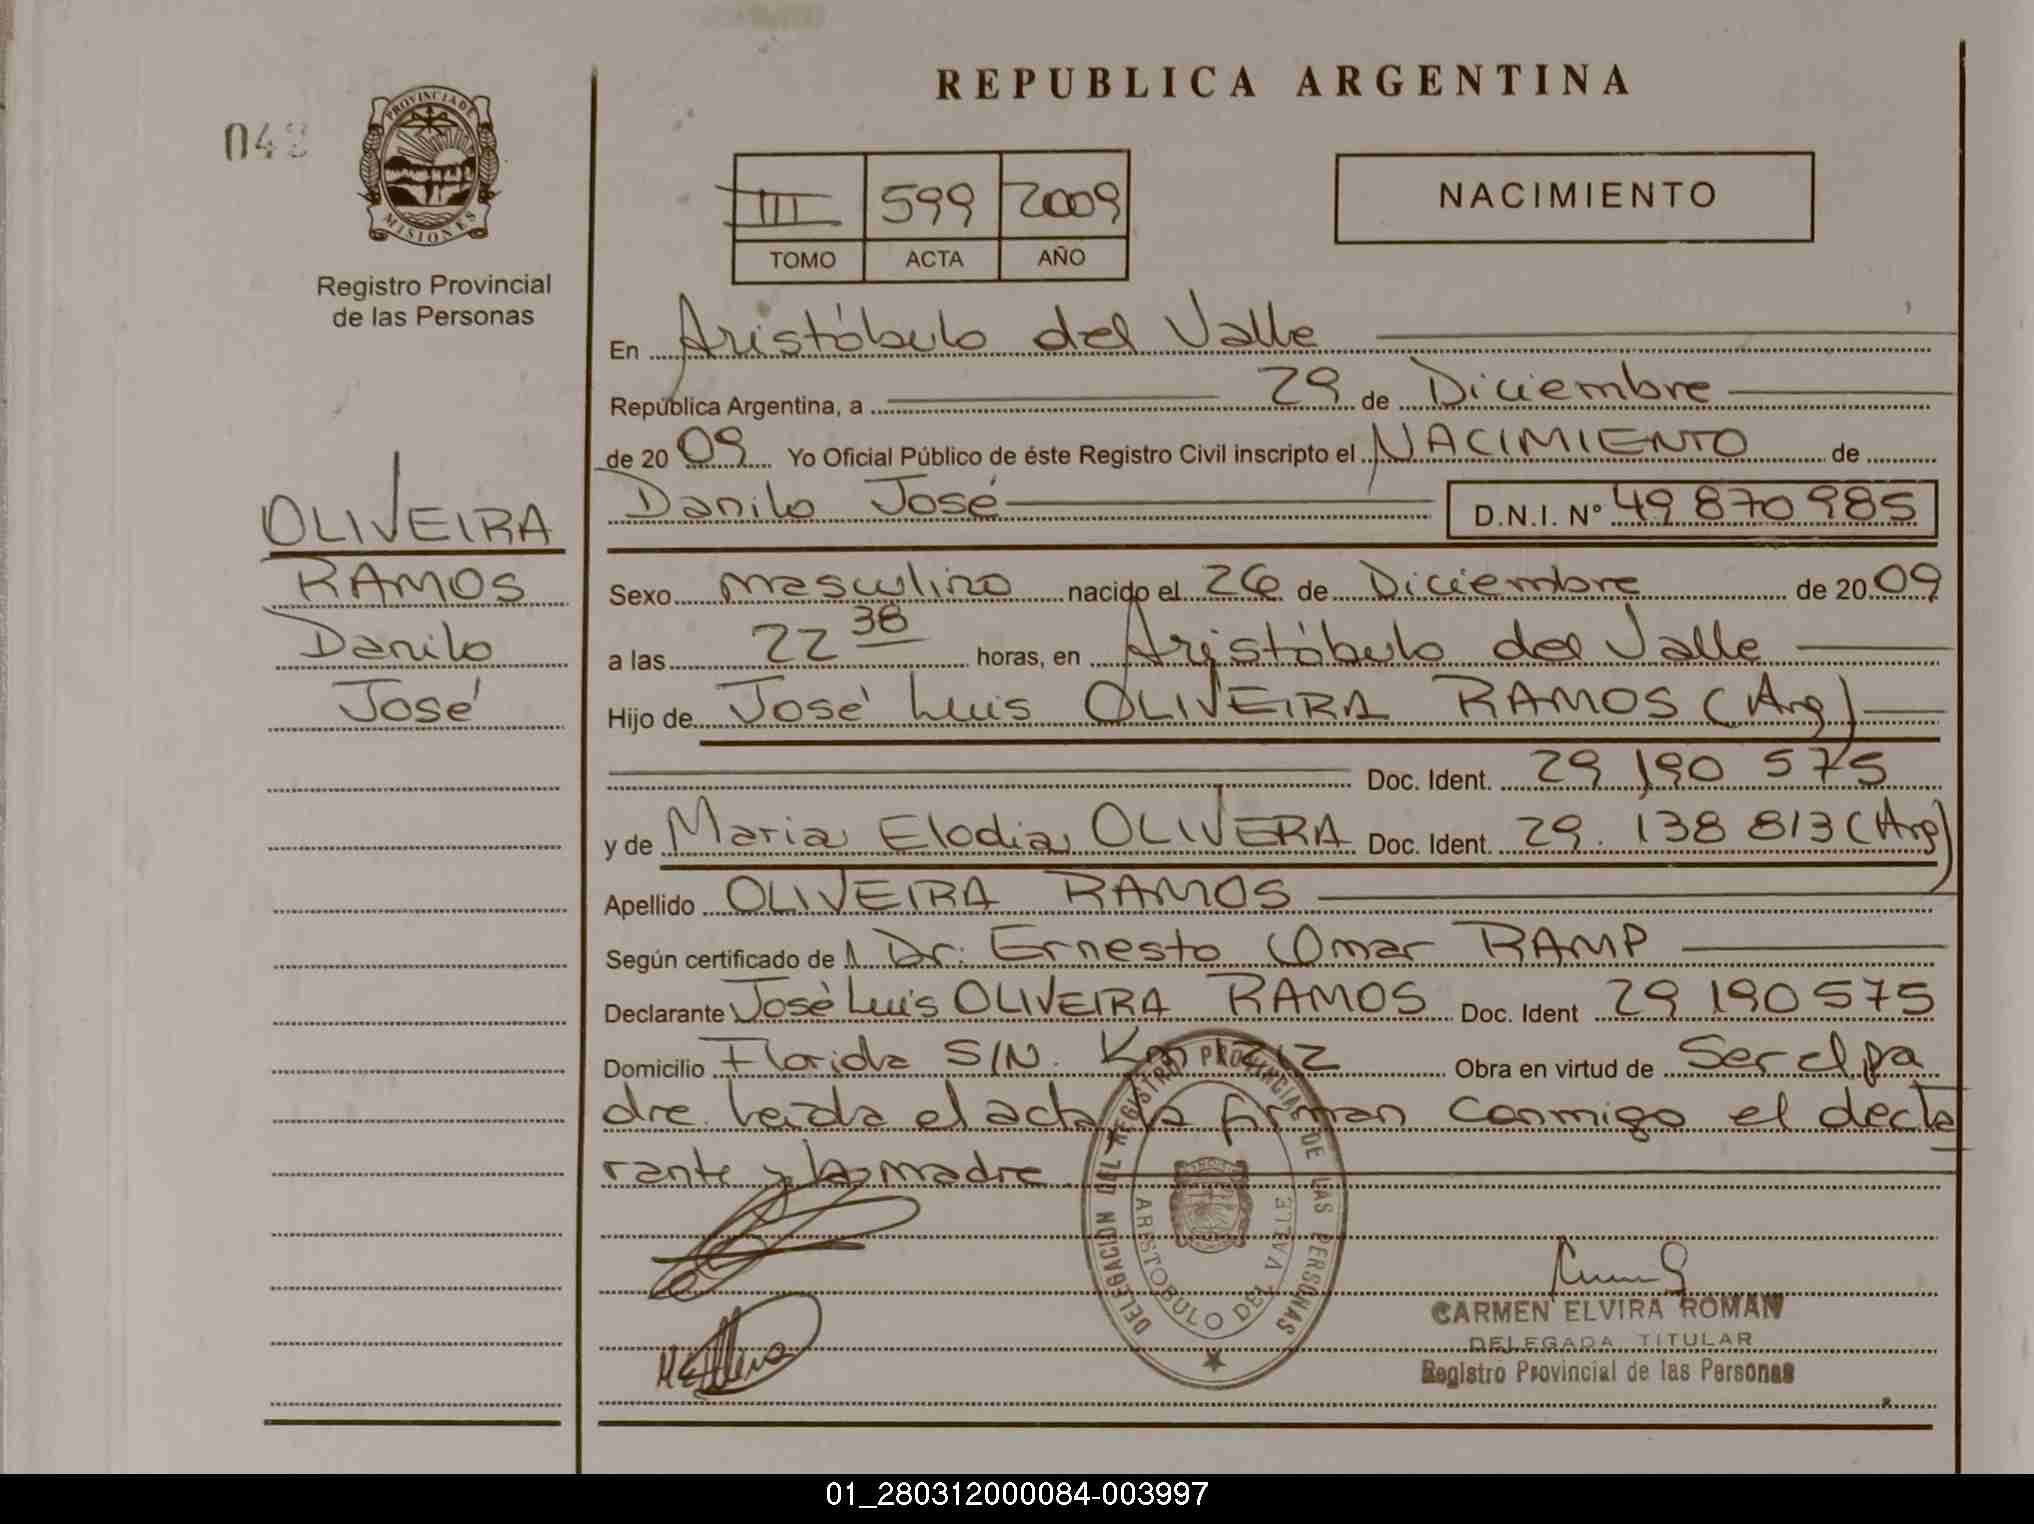 REPUBLICA ARGENTINA
PROVINCIA DE
MISIONES
Registro Provincial
de las Personas
III 599 2009
TOMO ACTA AÑO
NACIMIENTO
En Aristóbulo del Valle
República Argentina, a 29 de Diciembre
de 20 09 Yo Oficial Público de éste Registro Civil inscripto el NACIMIENTO de
Danilo José D.N.I. N° 49 870 985
OLIVEIRA
RAMOS
Danilo
José
Sexo masculino nacido el 26 de Diciembre de 20 09
a las 22 38 horas, en Aristóbulo del Valle
Hijo de José Luis OLIVEIRA RAMOS (Arg)
Doc. Ident. 29 190 575
y de Maria Elodia OLIVERA Doc. Ident. 29. 138 813 (Arg)
Apellido OLIVEIRA RAMOS
Según certificado de Dr. Ernesto Omar RAMP
Declarante José Luis OLIVEIRA RAMOS Doc. Ident 29 190 575
Domicilio Florida S/N. Km 1212 Obra en virtud de Ser el pa
dre. Leida el acta la firman conmigo el decla
rante y la madre
DELEGACION DEL REGISTRO PROVINCIAL DE LAS PERSONAS
ARISTOBULO DEL VALLE
CARMEN ELVIRA ROMAN
DELEGADA TITULAR
Registro Provincial de las Personas
01_280312000084-003997